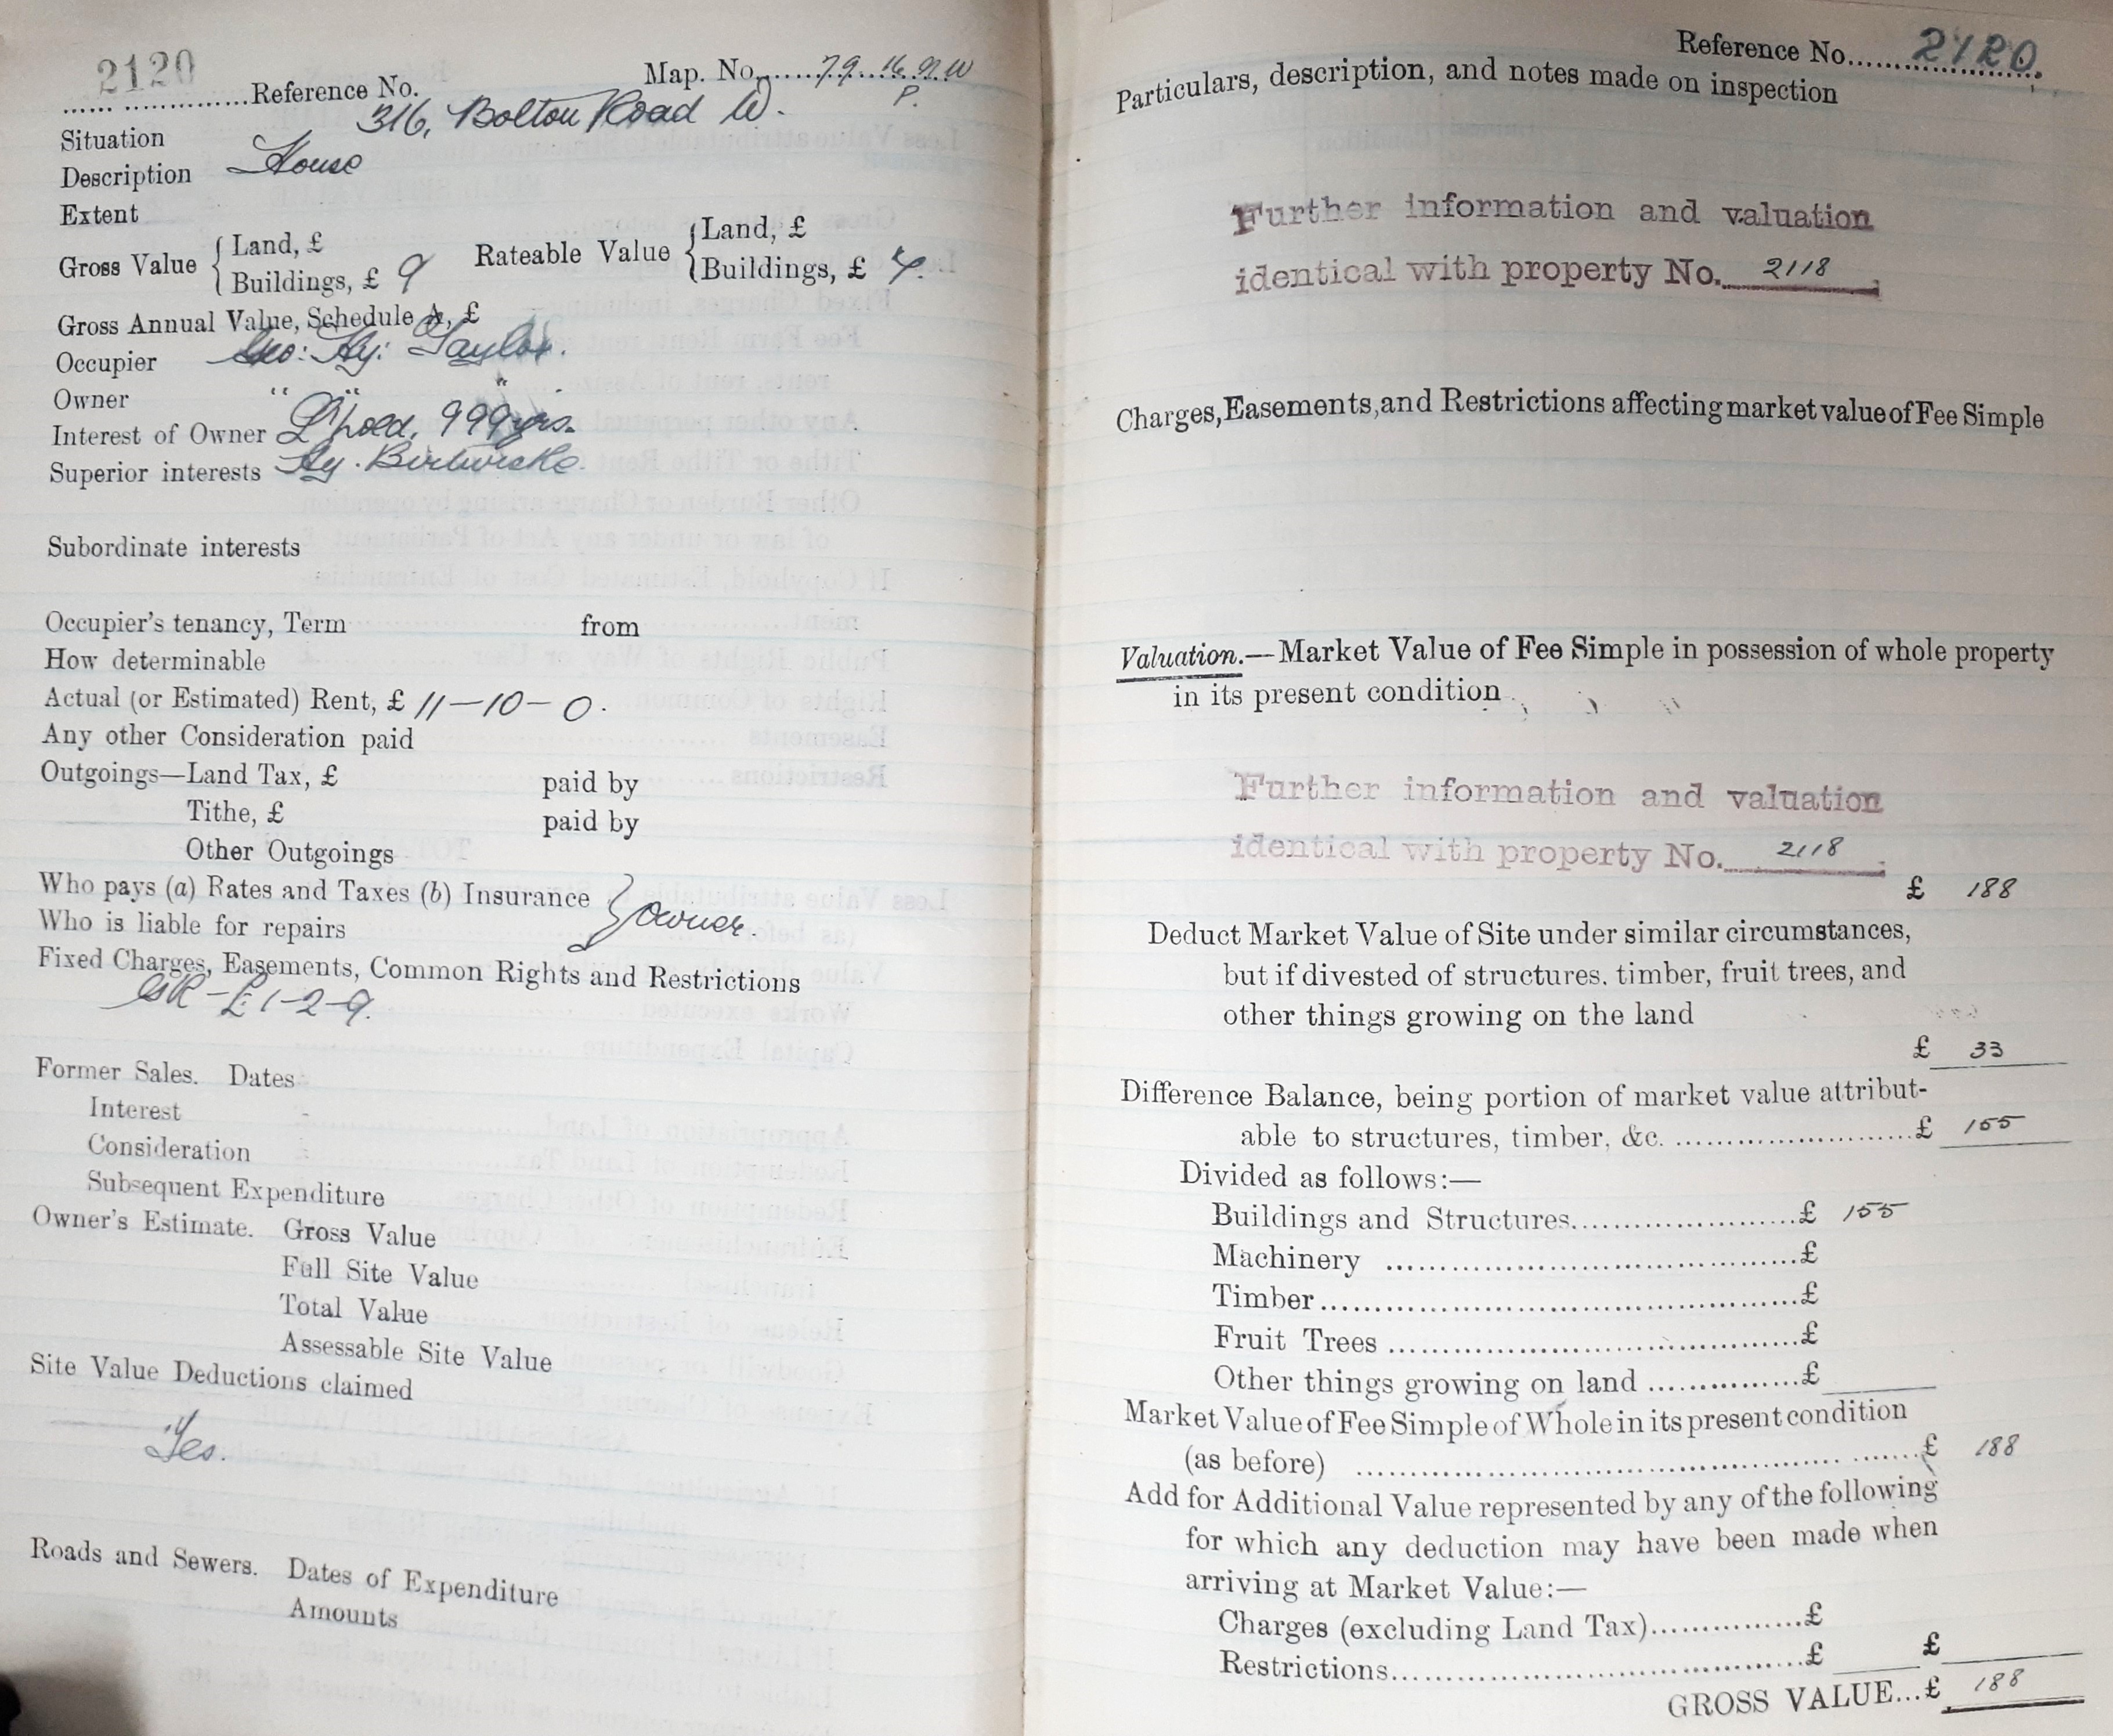 2120
Reference No. Map. No. 79. 16. N.W
P.
Situation 316, Bolton Road W.
Description House
Extent
Gross Value { Land, £
Buildings, £ 9
Rateable Value { Land, £
Buildings, £
Gross Annual Value, Schedule A, £
Occupier Geo: Hy: Taylor.
Owner " " "
Interest of Owner L'hold, 999 yrs.
Superior interests Hy. Birtwistle.
Subordinate interests
Occupier's tenancy, Term from
How determinable
Actual (or Estimated) Rent, £ 11-10-0.
Any other Consideration paid
Outgoings—Land Tax, £ paid by
Tithe, £ paid by
Other Outgoings
Who pays (a) Rates and Taxes (b) Insurance } Owner.
Who is liable for repairs
Fixed Charges, Easements, Common Rights and Restrictions
GR-£1-2-9.
Former Sales. Dates
Interest
Consideration
Subsequent Expenditure
Owner's Estimate. Gross Value
Full Site Value
Total Value
Assessable Site Value
Site Value Deductions claimed
Yes.
Roads and Sewers. Dates of Expenditure
Amounts
Reference No. 2120.
Particulars, description, and notes made on inspection
Further information and valuation
identical with property No. 2118.
Charges, Easements, and Restrictions affecting market value of Fee Simple
Valuation.—Market Value of Fee Simple in possession of whole property
in its present condition
Further information and valuation
identical with property No. 2118.
£ 188
Deduct Market Value of Site under similar circumstances,
but if divested of structures. timber, fruit trees, and
other things growing on the land
£ 33
Difference Balance, being portion of market value attribut-
able to structures, timber, &c. £ 155
Divided as follows:—
Buildings and Structures £ 155
Machinery £
Timber £
Fruit Trees £
Other things growing on land £
Market Value of Fee Simple of Whole in its present condition
(as before) £ 188
Add for Additional Value represented by any of the following
for which any deduction may have been made when
arriving at Market Value:—
Charges (excluding Land Tax) £
Restrictions £ £
GROSS VALUE...£ 188